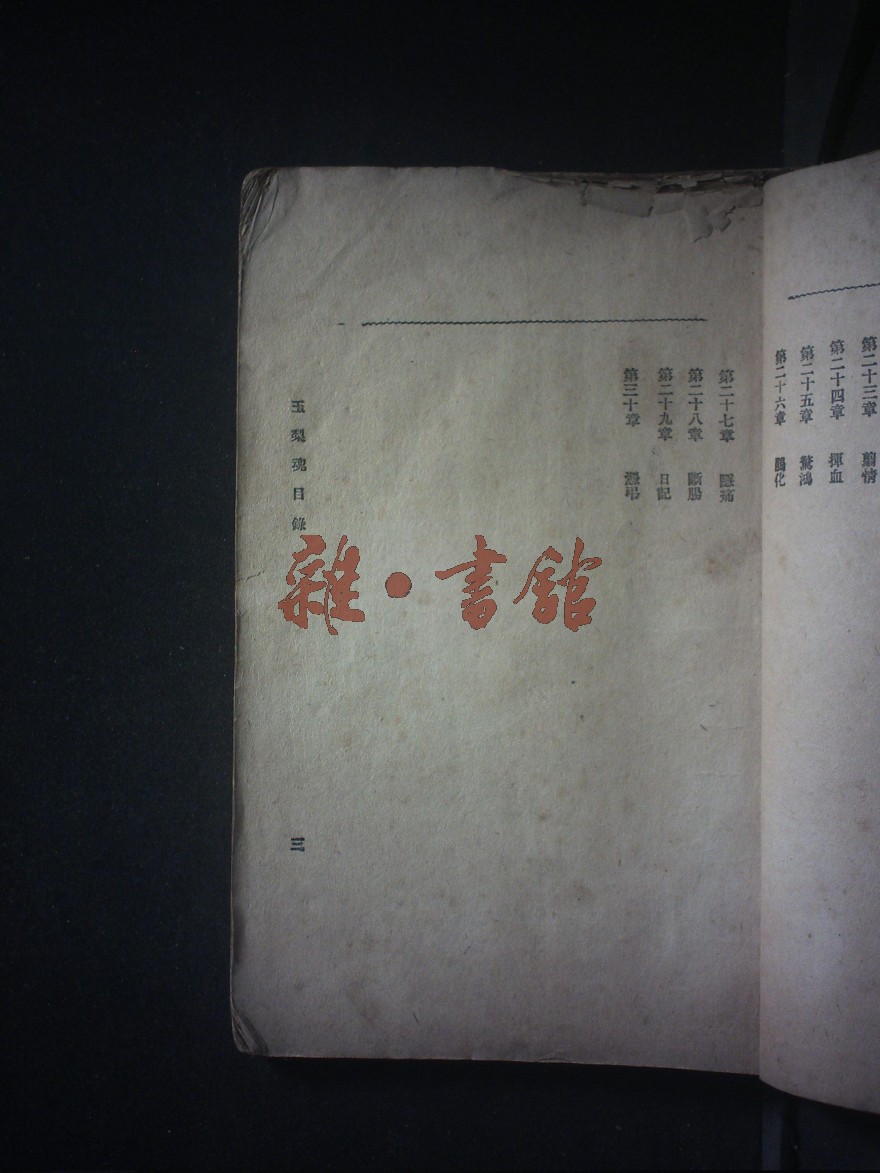 第二十三章　剪情
第二十四章　揮血
第二十五章　驚鴻
第二十六章　鵑化
第二十七章　隱痛
第二十八章　斷腸
第二十九章　日記
第三十章　憑弔
玉梨魂目錄
三
雜·書館